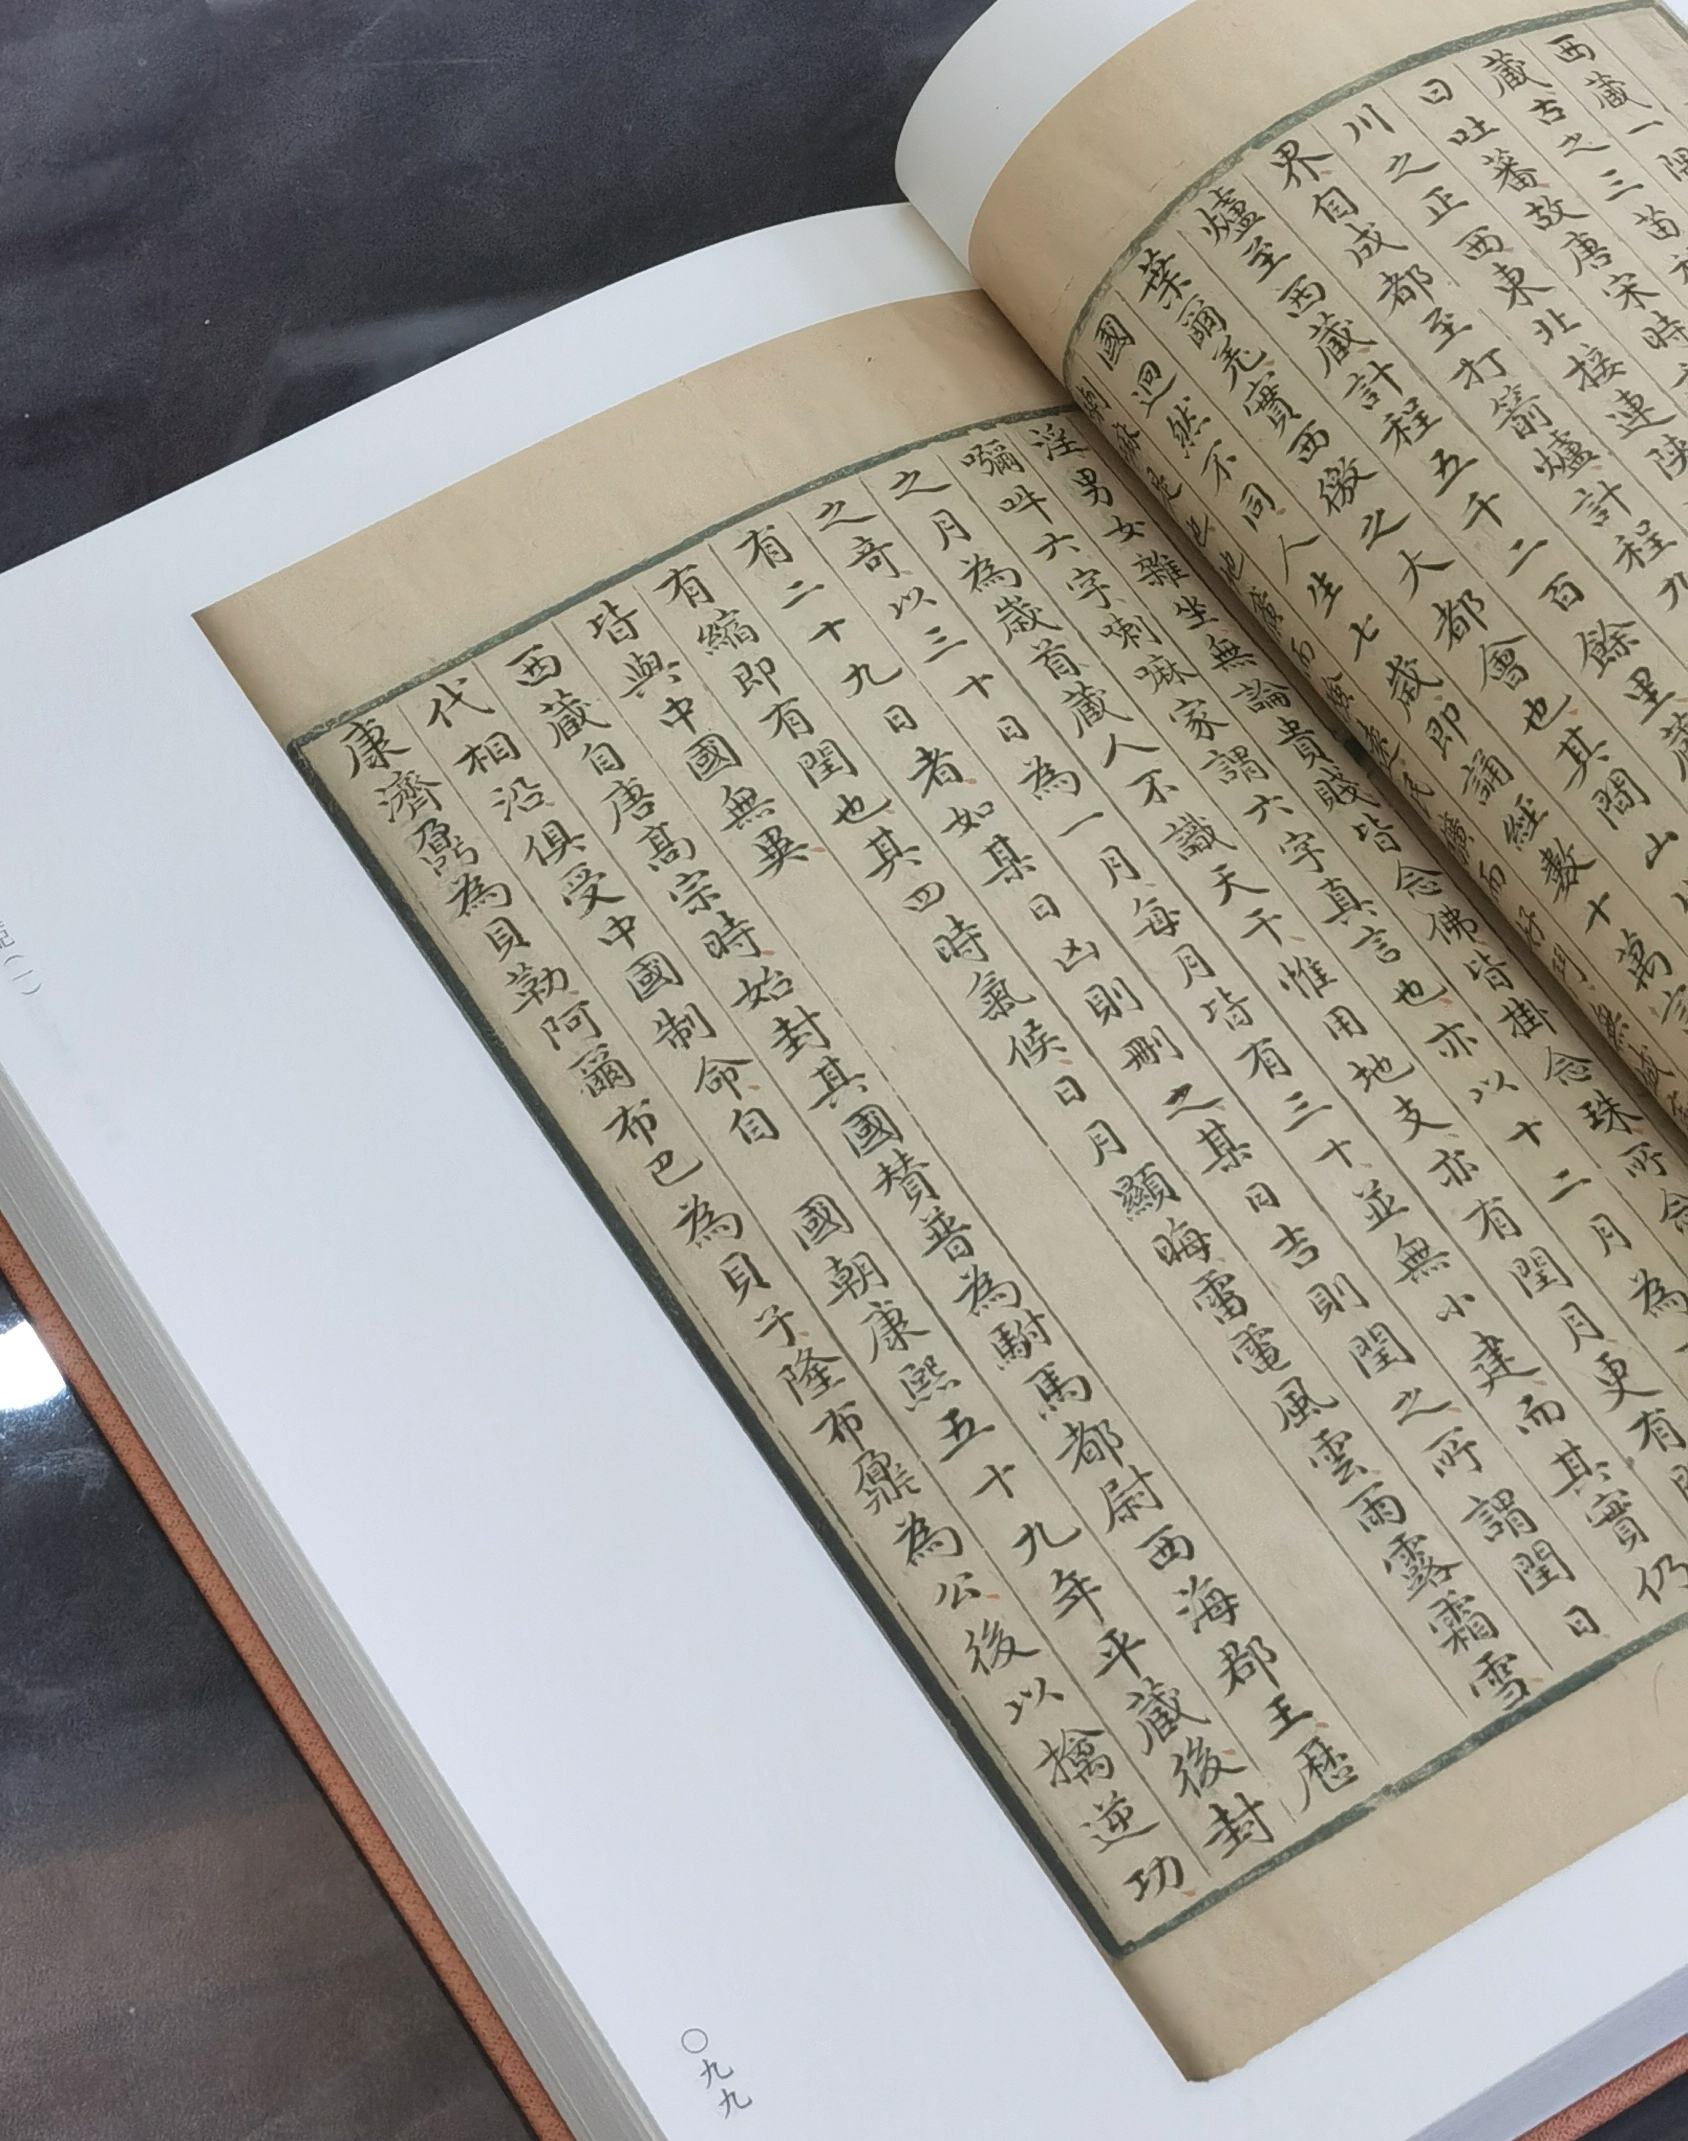 西藏一隅
藏古之三苗
曰吐蕃故唐宋時
川之正西東北接連陝
界自成都至打箭爐計程九
爐至西藏計程五千二百餘里
葉爾羌實西徼之大都會也其間山
國迥然不同人生七歲即誦經數十萬言
淫男女雜坐無論貴賤皆念佛皆掛念珠所念
嘛吽六字喇嘛家謂六字真言也亦以十二月為
之月為歲首藏人不識天干惟用地支亦有閏月更有
之奇以三十日為一月每月皆有三十並無小建而其實仍
有二十九日者如某日凶則刪之某日吉則閏之所謂閏日
有縮即有閏也其四時氣候日月顯晦雷電風雲雨露霜雪
皆與中國無異
西藏自唐高宗時始封其國贊普為駙馬都尉西海郡王歷
代相沿俱受中國制命自 國朝康熙五十九年平藏後封
康濟鼐為貝勒阿爾布巴為貝子隆布鼐為公後以擒逆功
〇九九